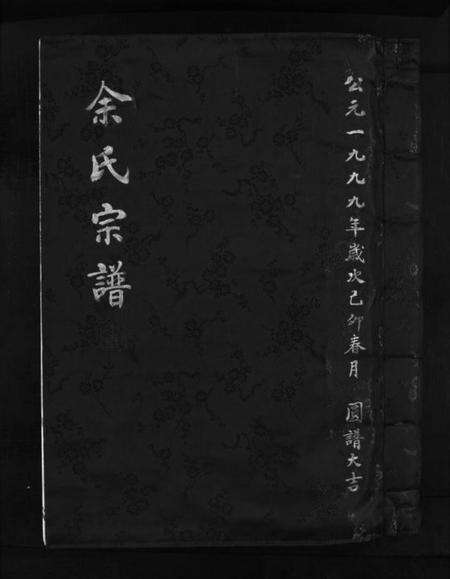 公元一九九九年歲次己卯春月 圓譜大吉
余氏宗譜